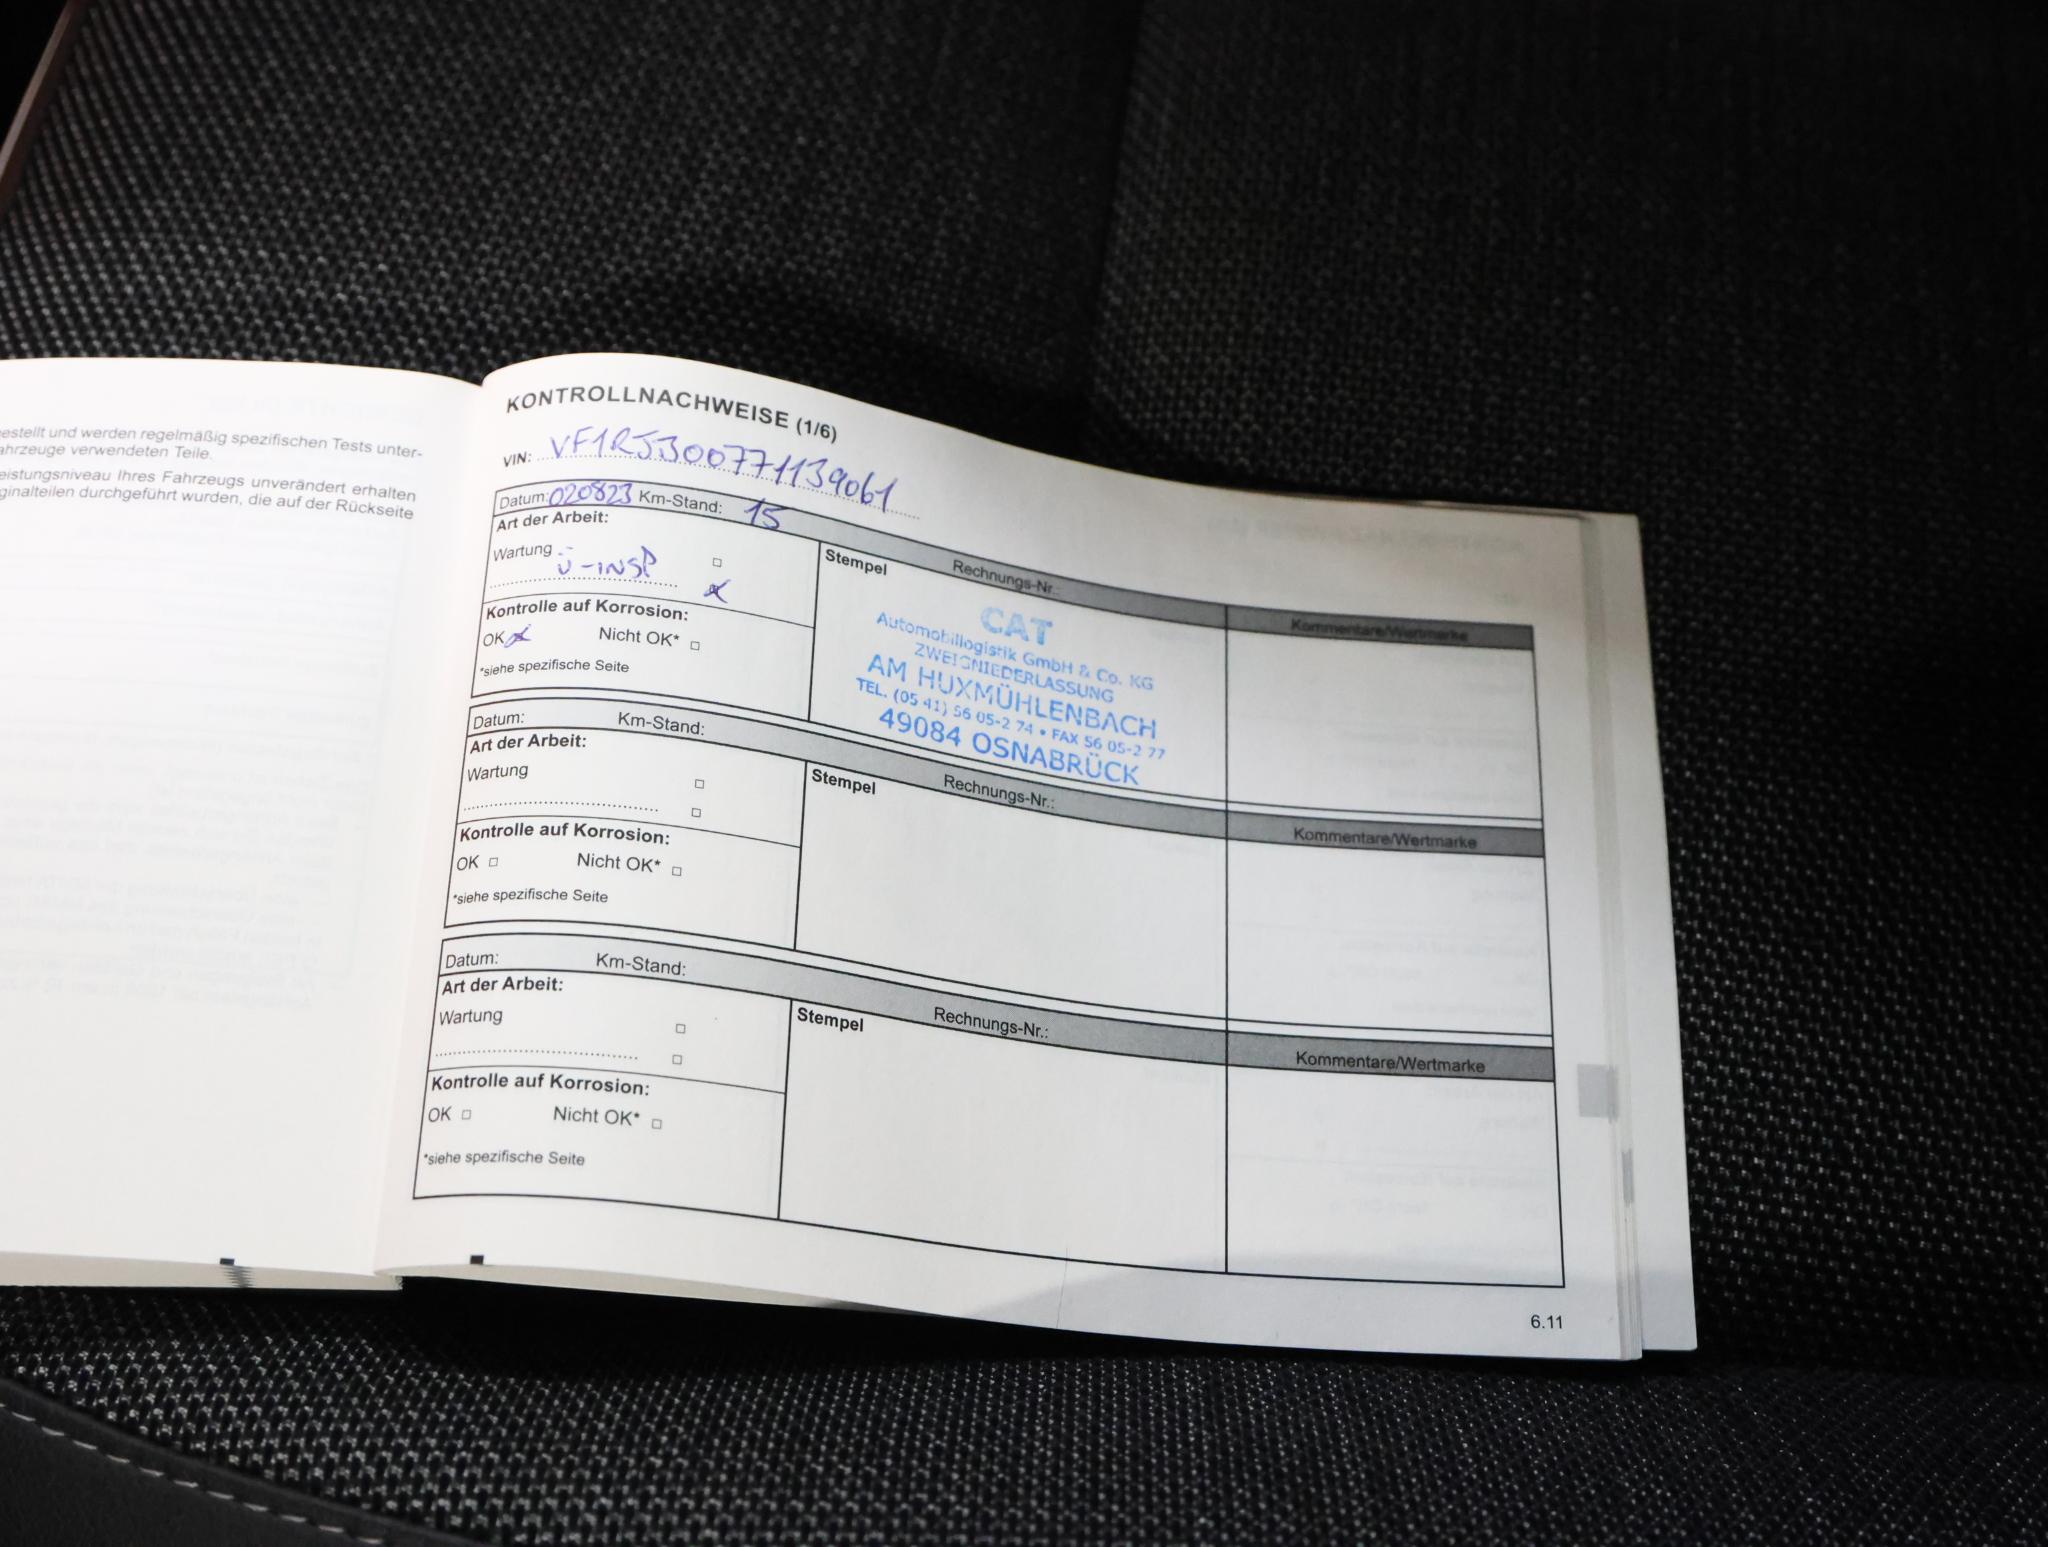 estellt und werden regelmäßig spezifischen Tests unter-
ahrzeuge verwendeten Teile.
eistungsniveau Ihres Fahrzeugs unverändert erhalten
ginalteilen durchgeführt wurden, die auf der Rückseite
KONTROLLNACHWEISE (1/6)
VIN: VF1RJB00771139061
Datum: 020823 Km-Stand: 15
Rechnungs-Nr.:
Kommentare/Wertmarke
Art der Arbeit:
Wartung
Ü-INSP
Kontrolle auf Korrosion:
OK Nicht OK*
*siehe spezifische Seite
Stempel
CAT
Automobillogistik GmbH & Co. KG
ZWEIGNIEDERLASSUNG
AM HUXMÜHLENBACH
TEL. (05 41) 56 05-2 74 • FAX 56 05-2 77
49084 OSNABRÜCK
Datum: Km-Stand:
Rechnungs-Nr.:
Kommentare/Wertmarke
Art der Arbeit:
Wartung
Kontrolle auf Korrosion:
OK Nicht OK*
*siehe spezifische Seite
Stempel
Datum: Km-Stand:
Rechnungs-Nr.:
Kommentare/Wertmarke
Art der Arbeit:
Wartung
Kontrolle auf Korrosion:
OK Nicht OK*
*siehe spezifische Seite
Stempel
6.11